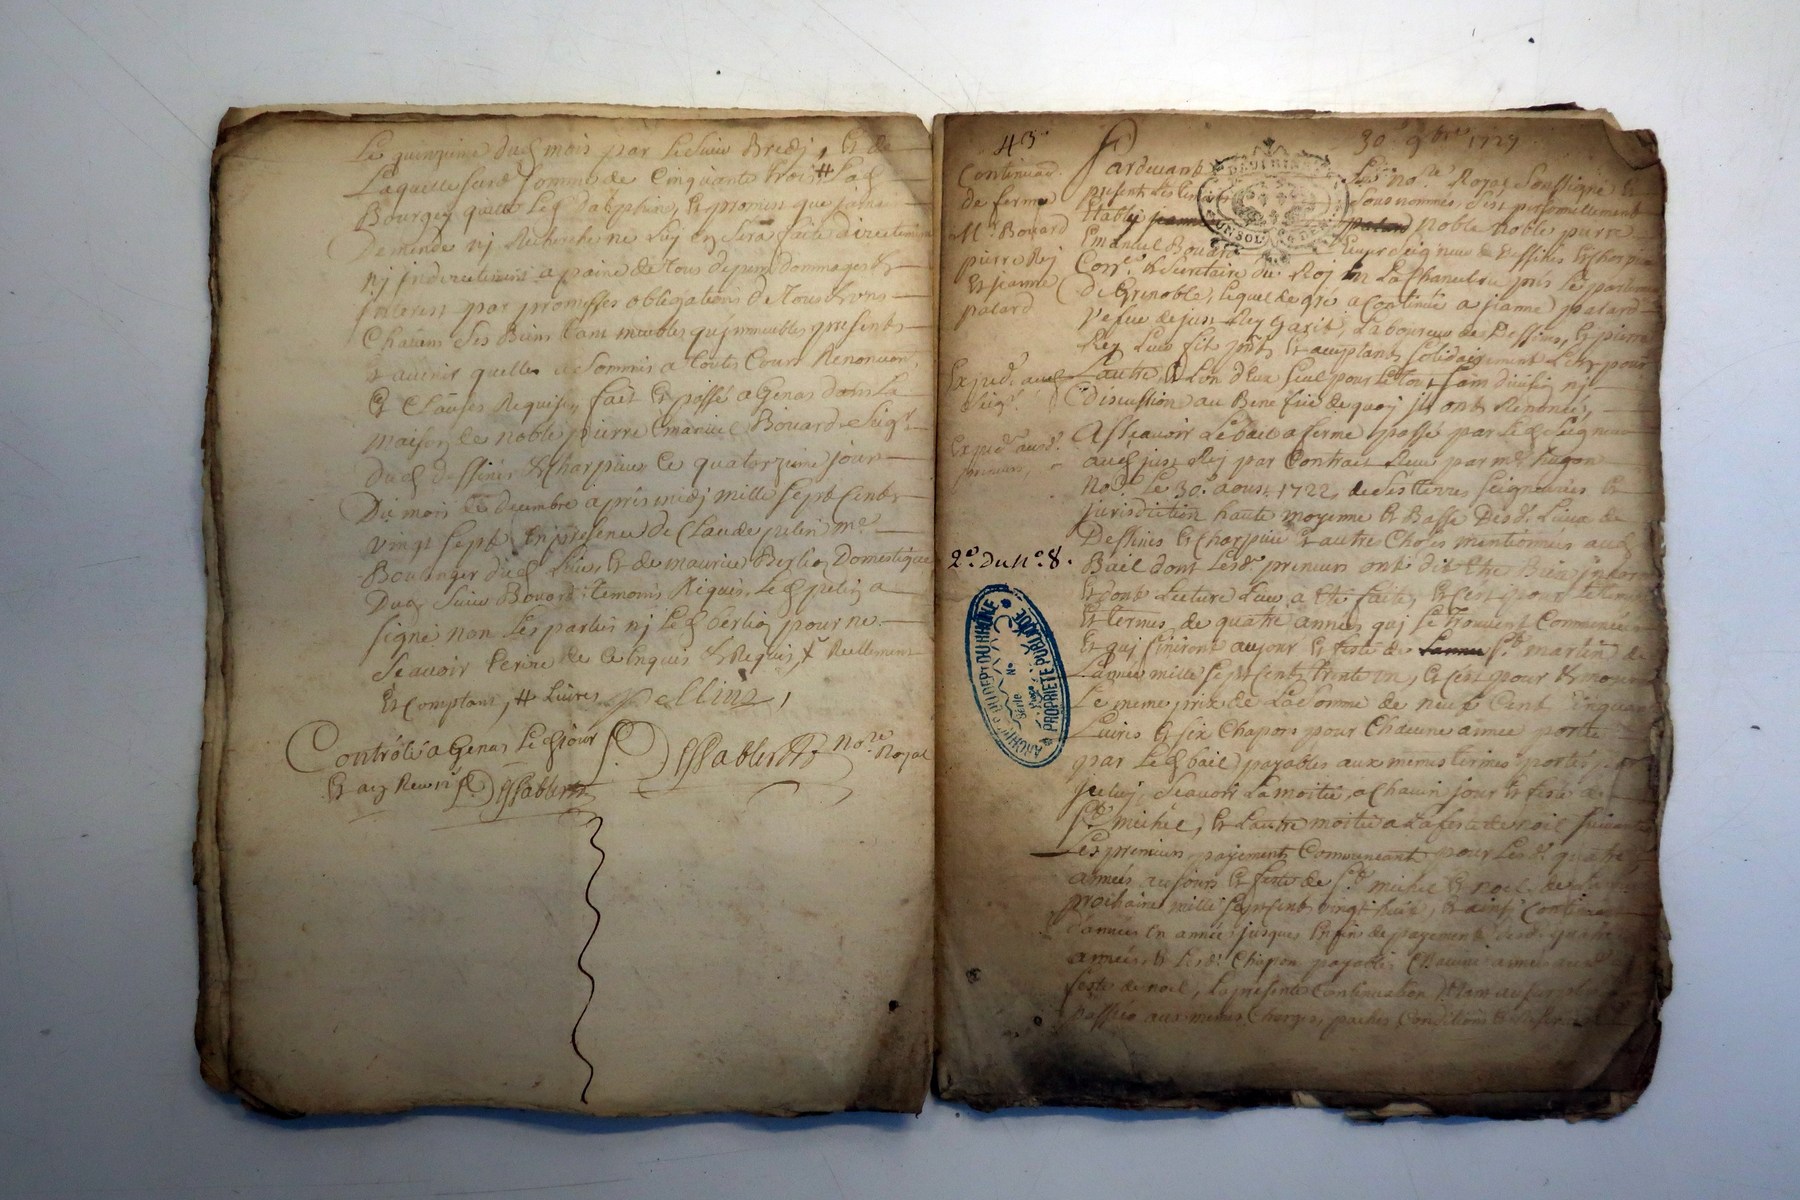 Le quinzieme dud mois par Le sieur Bredj, Et de
Laquelle susd somme de Cinquante trois # Lad
Bourgey quitte Led Dauphin, Et promest que jamais
Demande nj Recherche ne Luy en sera faite directement
nj Indirectement a paine de tous depens dommages &
Interest par promesses obligations de tous & uns
Chacuns Ses Biens tant meubles qujmmeubles presents
Et avenir quelles a sommis a toutes Cours Renoncons
Et Clauses Requises fait Et passé a Genas dans La
maison de noble pierre Emanuel Bouard Seigr
dud dessines & Charpieu Ce quatorzieme jour
Du mois de decembre apres midj mille sept Cents
vingt sept En presence de Claude jutin me
Boulanger dud Lieu, Et de maurice Berlioz Domestique
Dud Sieur Bouard temoins Requis, Led jutin a
signé non Les parties nj Led berlioz pour ne
Scavoir Ecrire de Ce Enquis & Requis, x Reellement
Et Comptant, # Livres
Contrôlé a Genas Led jour
Et an Essablier Nore Royal
Essablier
43 30e 9bre 1727
Continuaon
de ferme
Mr Bouard
pierre Rej
Et jeanne
patard
Pardevant Le Nore Royal Soussigné Et
presents Les temoins Sous nommés, s'est personnellement
Etably noble Noble pierre
Emanuel Bouard Ecuyer Seigneur de Dessines Et Charpieu
Conr & Secretaire du Roj En La Chancelerie prés Le parlement
de Grenoble, Lequel de gré a Continué a jeanne patard
veuve de just Rey Laboureur de Dessines, Et pierre
Rey Leur fils joints Et acceptants solidairement L'un pour
Expedié aud
Seigr
L'autre Et L'un d'Eux seul pour Le tout sans division nj
Discussion au Benefice de quoj jls ont Renoncés,
Expedié ausd
preneurs,
Asscavoir Le bail a ferme passé par Led Seigneur
aud just Rej par Contrait Reçu par me hugon
nore Le 30e aoust 1722, de Ses terres Seigneuries Et
jurisdiction haute moyenne Et Basse Desd. Lieux de
Dessines Et Charpieu Et autres Choses mentionnées aud
2e. Du No. 8.
Bail dont Lesd. preneurs ont dit Etre Bien Informés
Et dont Lecture Leur a Eté faite, Et C'est pour Le temps
Et termes de quatre années quj se trouvent Commencées
Et quj finiront au jour Et feste de St. martin de
L'année mille sept Cents trente un, Et C'est pour & moyennant
Le meme prix de La Somme de neuf Cent Cinquante
Livres Et six Chapons pour Chacune année porté
par Led bail, payables aux memes termes portés par
jceluj, Scavoir La moitié a Chacun jour Et feste de
St. michel, Et L'autre moitié a La feste de noel suivante
Les premiers payements Commencant pour Lesd. quatre
années aux jours Et feste de St. michel Et noel de L'année
prochaine mille sept Cents vingt huit, Et ainsj Continuer
d'années En années jusques En fins de payement desd. quatre
années, Et Lesd. Chapon payables Chacune année aud
feste de noel, La presente Continuation Etant au surplus
passées aux memes Charges, paches Conditions
ARCHIVES DU DEPT DU RHÔNE
Série
No
PROPRIÉTÉ PUBLIQUE